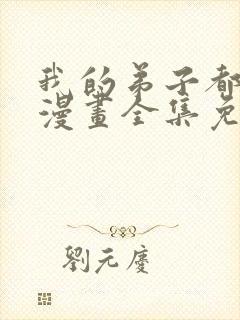 我的弟子都
漫畫全集免
劉元慶